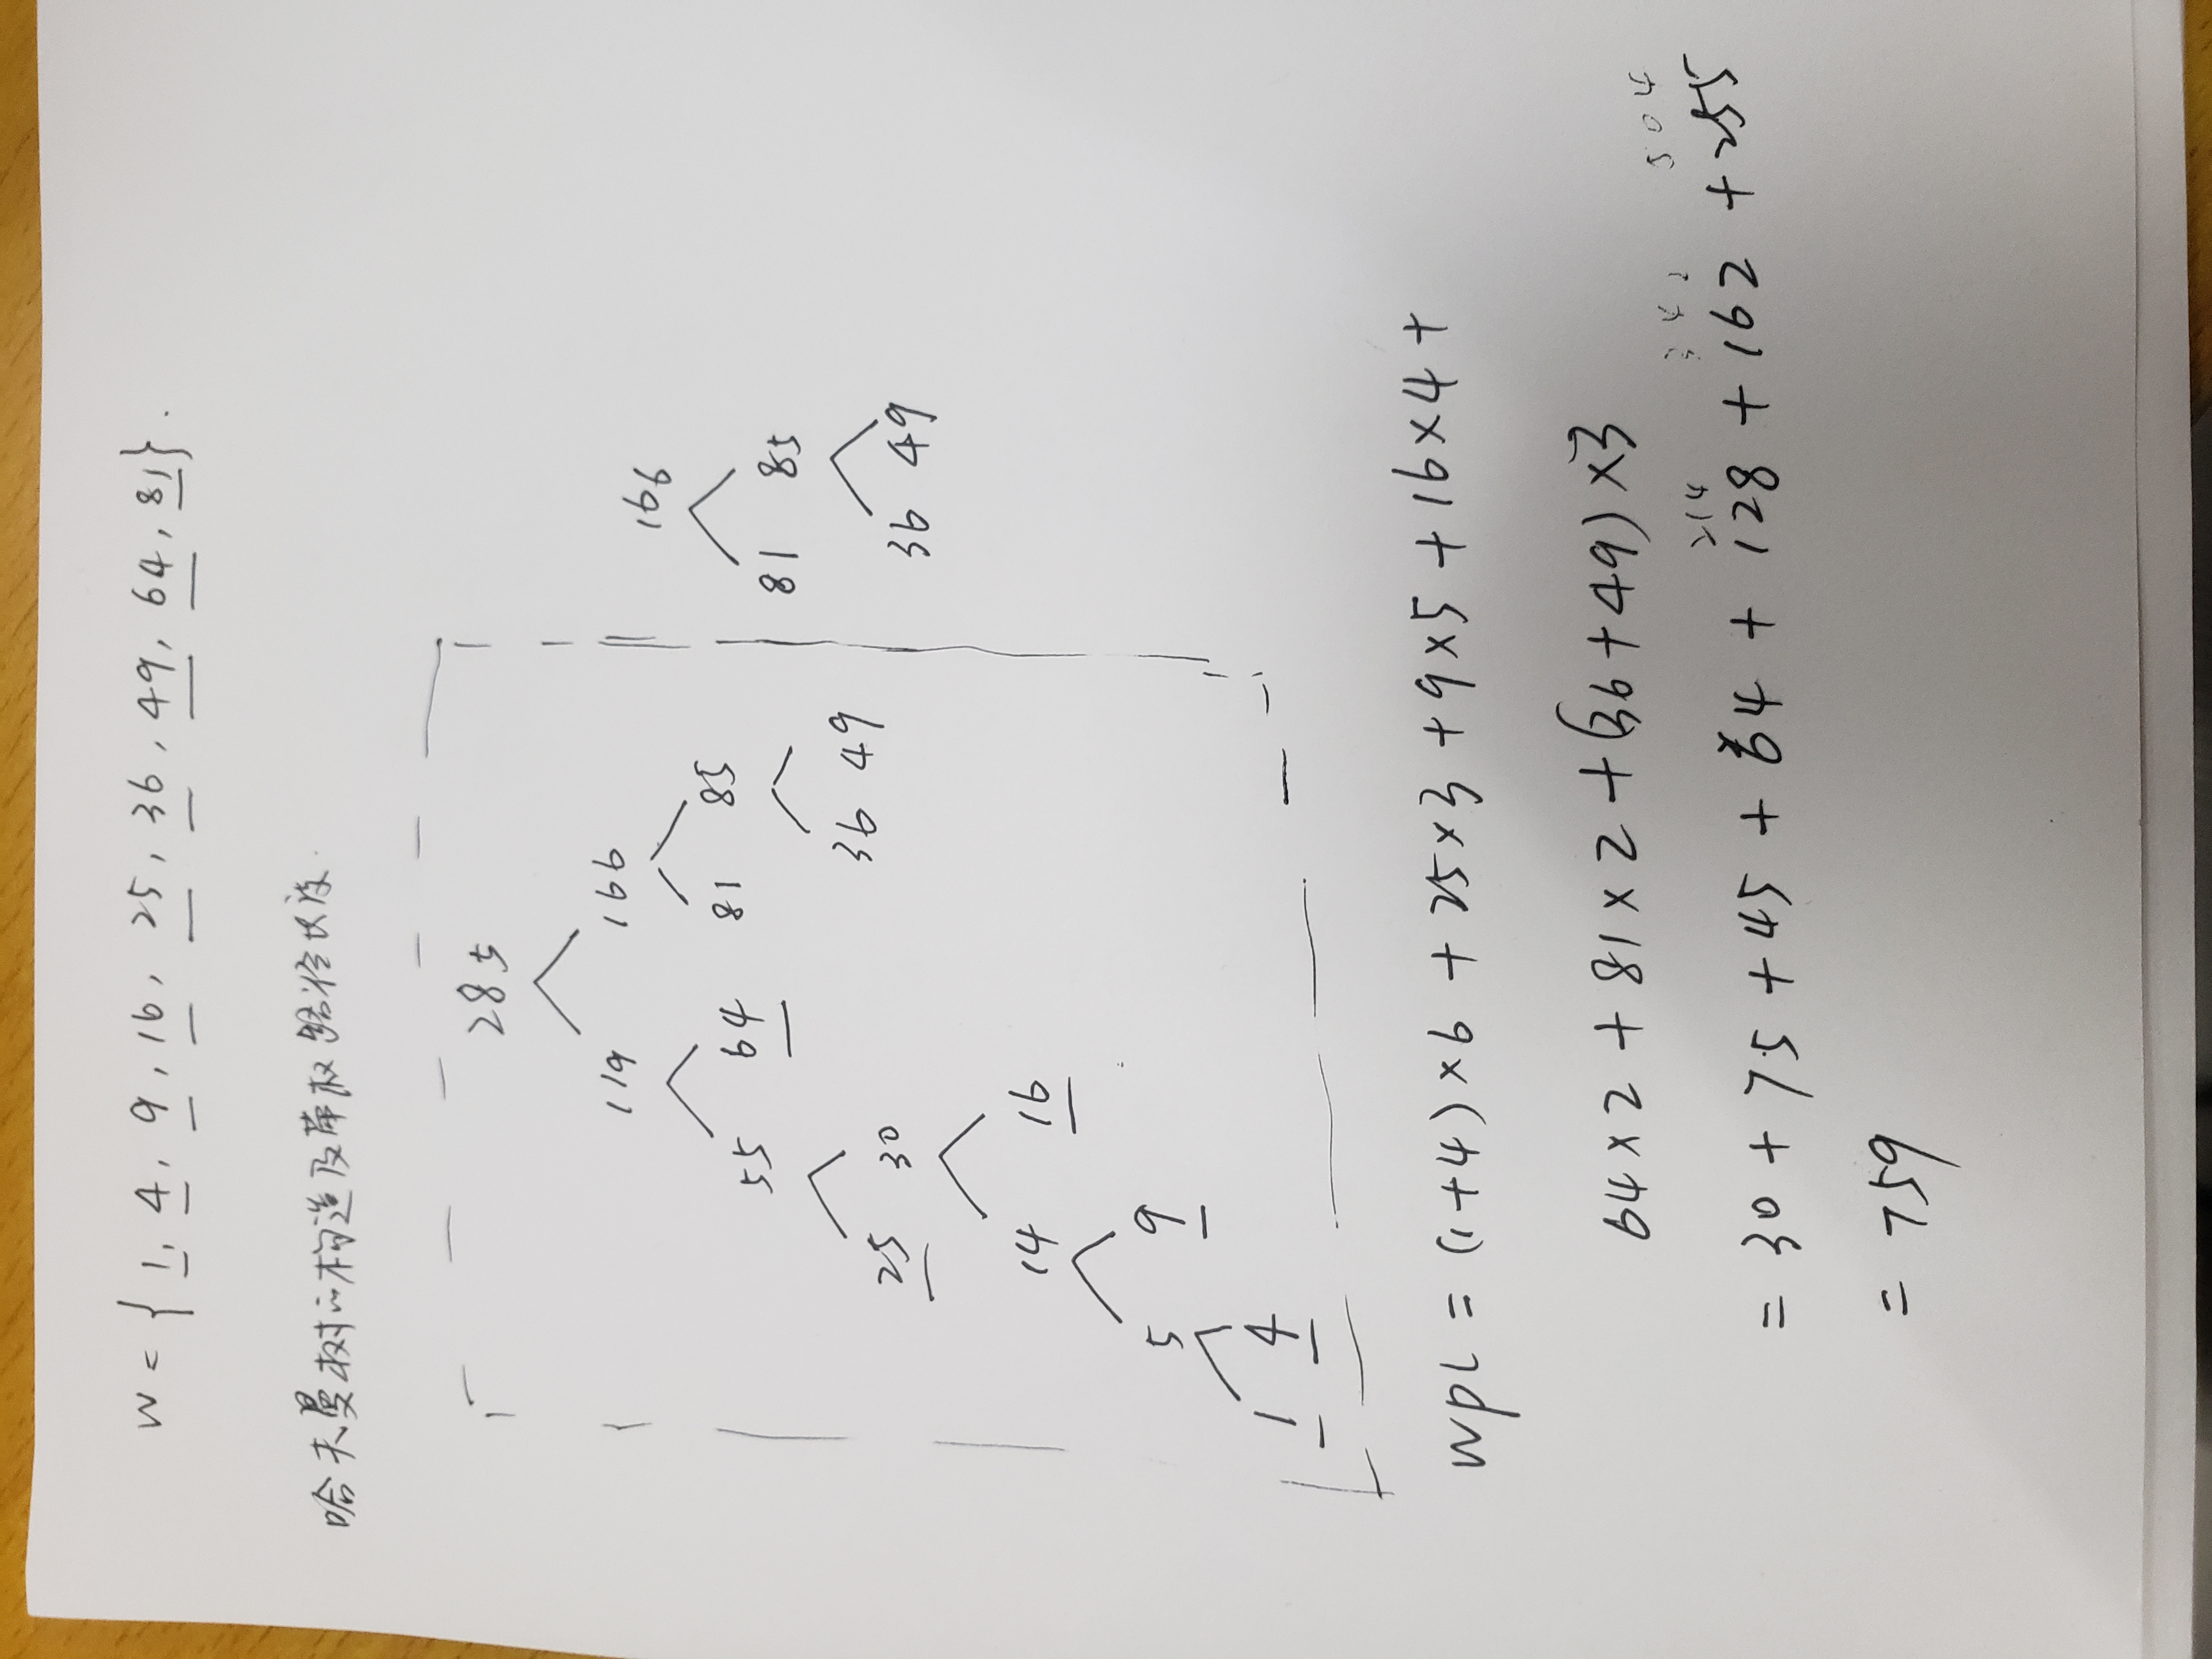 W = { 1, 4, 9, 16, 25, 36, 49, 64, 81}.
哈夫曼树的构造及带权路径长度.
285
119 166
55 64 81 85
25 30 36 49
14 16
5 9
1 4
166
81 85
36 49
wpl = (1+4)×6 + 25×3 + 9×5 + 16×4 +
64×2 + 81×2 + (36+49)×3
214 342 504
= 30 + 75 + 45 + 64 + 128 + 162 + 255
= 759